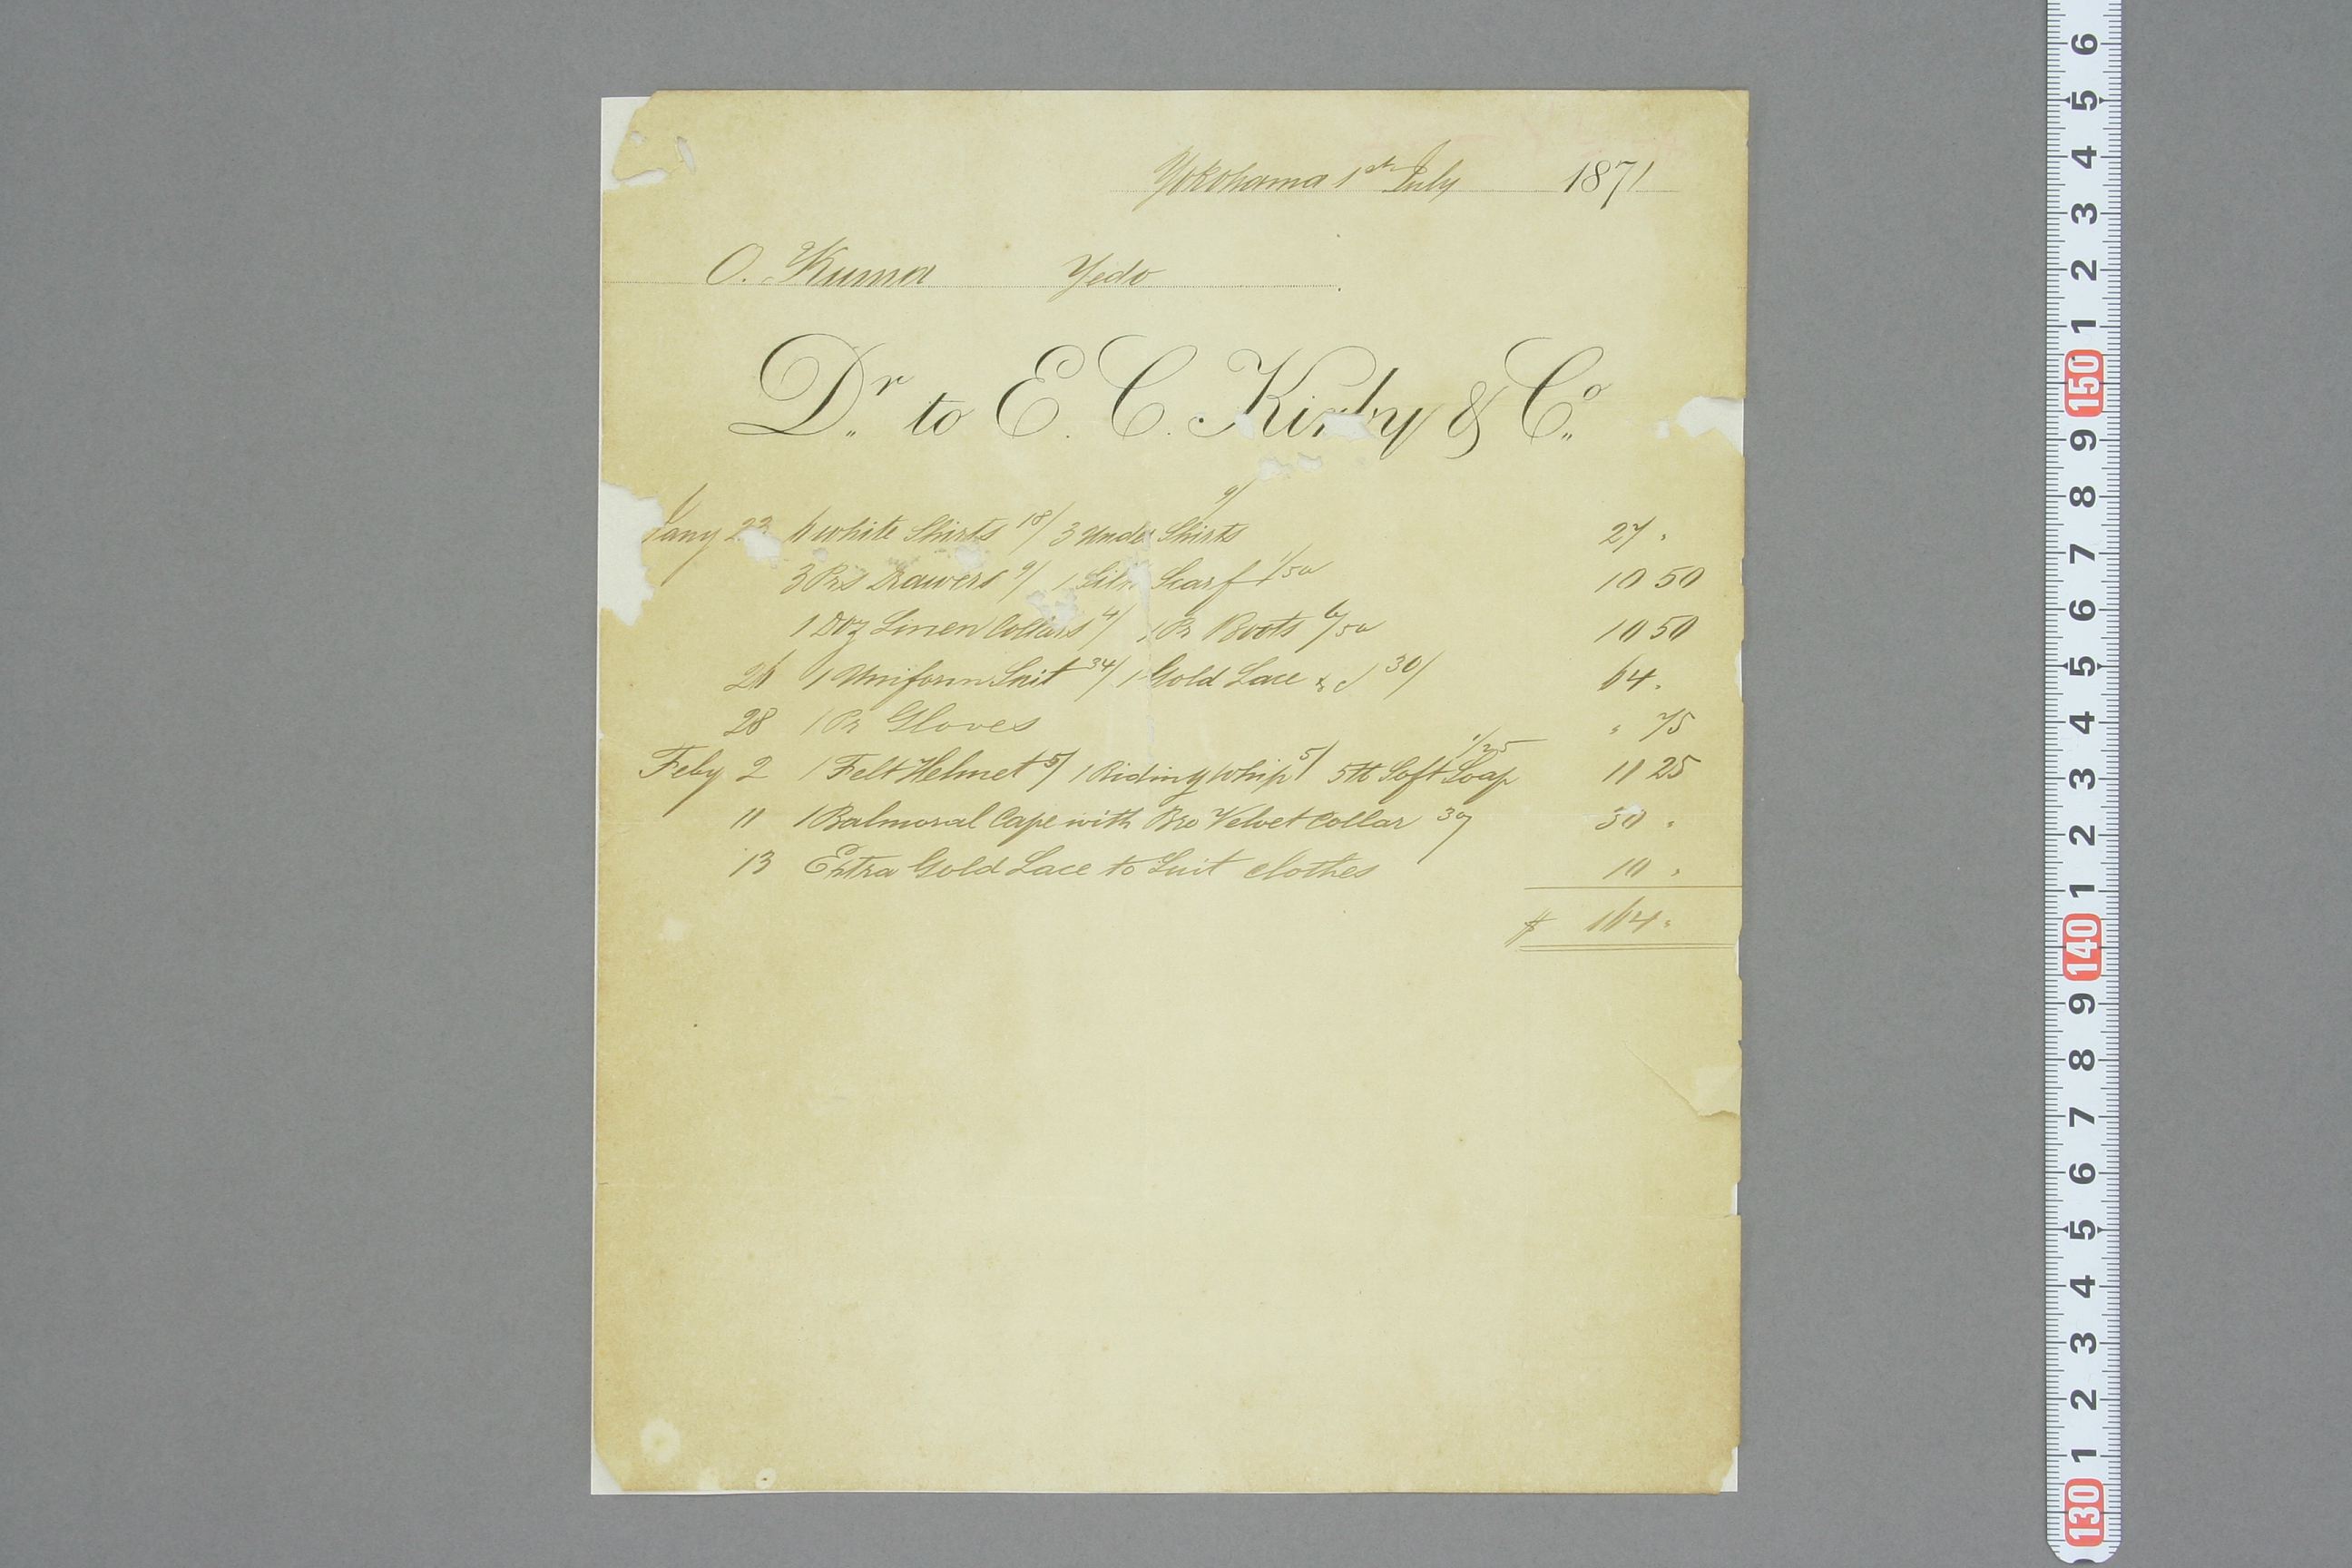 Yokohama 1st July 1871
O. Kuma Yedo
Dr. to E. C. Kirby & Co.
Jany 23 6 White Shirts 18/ 3 Under Shirts 9/ 27 "
3 Prs Drawers 9/ 1 Silk Scarf 1/50 10 50
1 Doz Linen Collars 4/ 1 Pr Boots 6/50 10 50
26 1 Uniform Suit 34/ 1 Gold Lace &c 30/ 64 "
28 1 Pr Gloves " 75
Feby 2 1 Felt Helmet 5/ 1 Riding Whip 5/ 5 lb Soft Soap 1/25 11 25
11 1 Balmoral Cape with Bro Velvet Collar 30/ 30 "
13 Extra Gold Lace to Suit clothes 10 "
$ 164 "
6
5
4
3
2
1
150
9
8
7
6
5
4
3
2
1
140
9
8
7
6
5
4
3
2
1
130